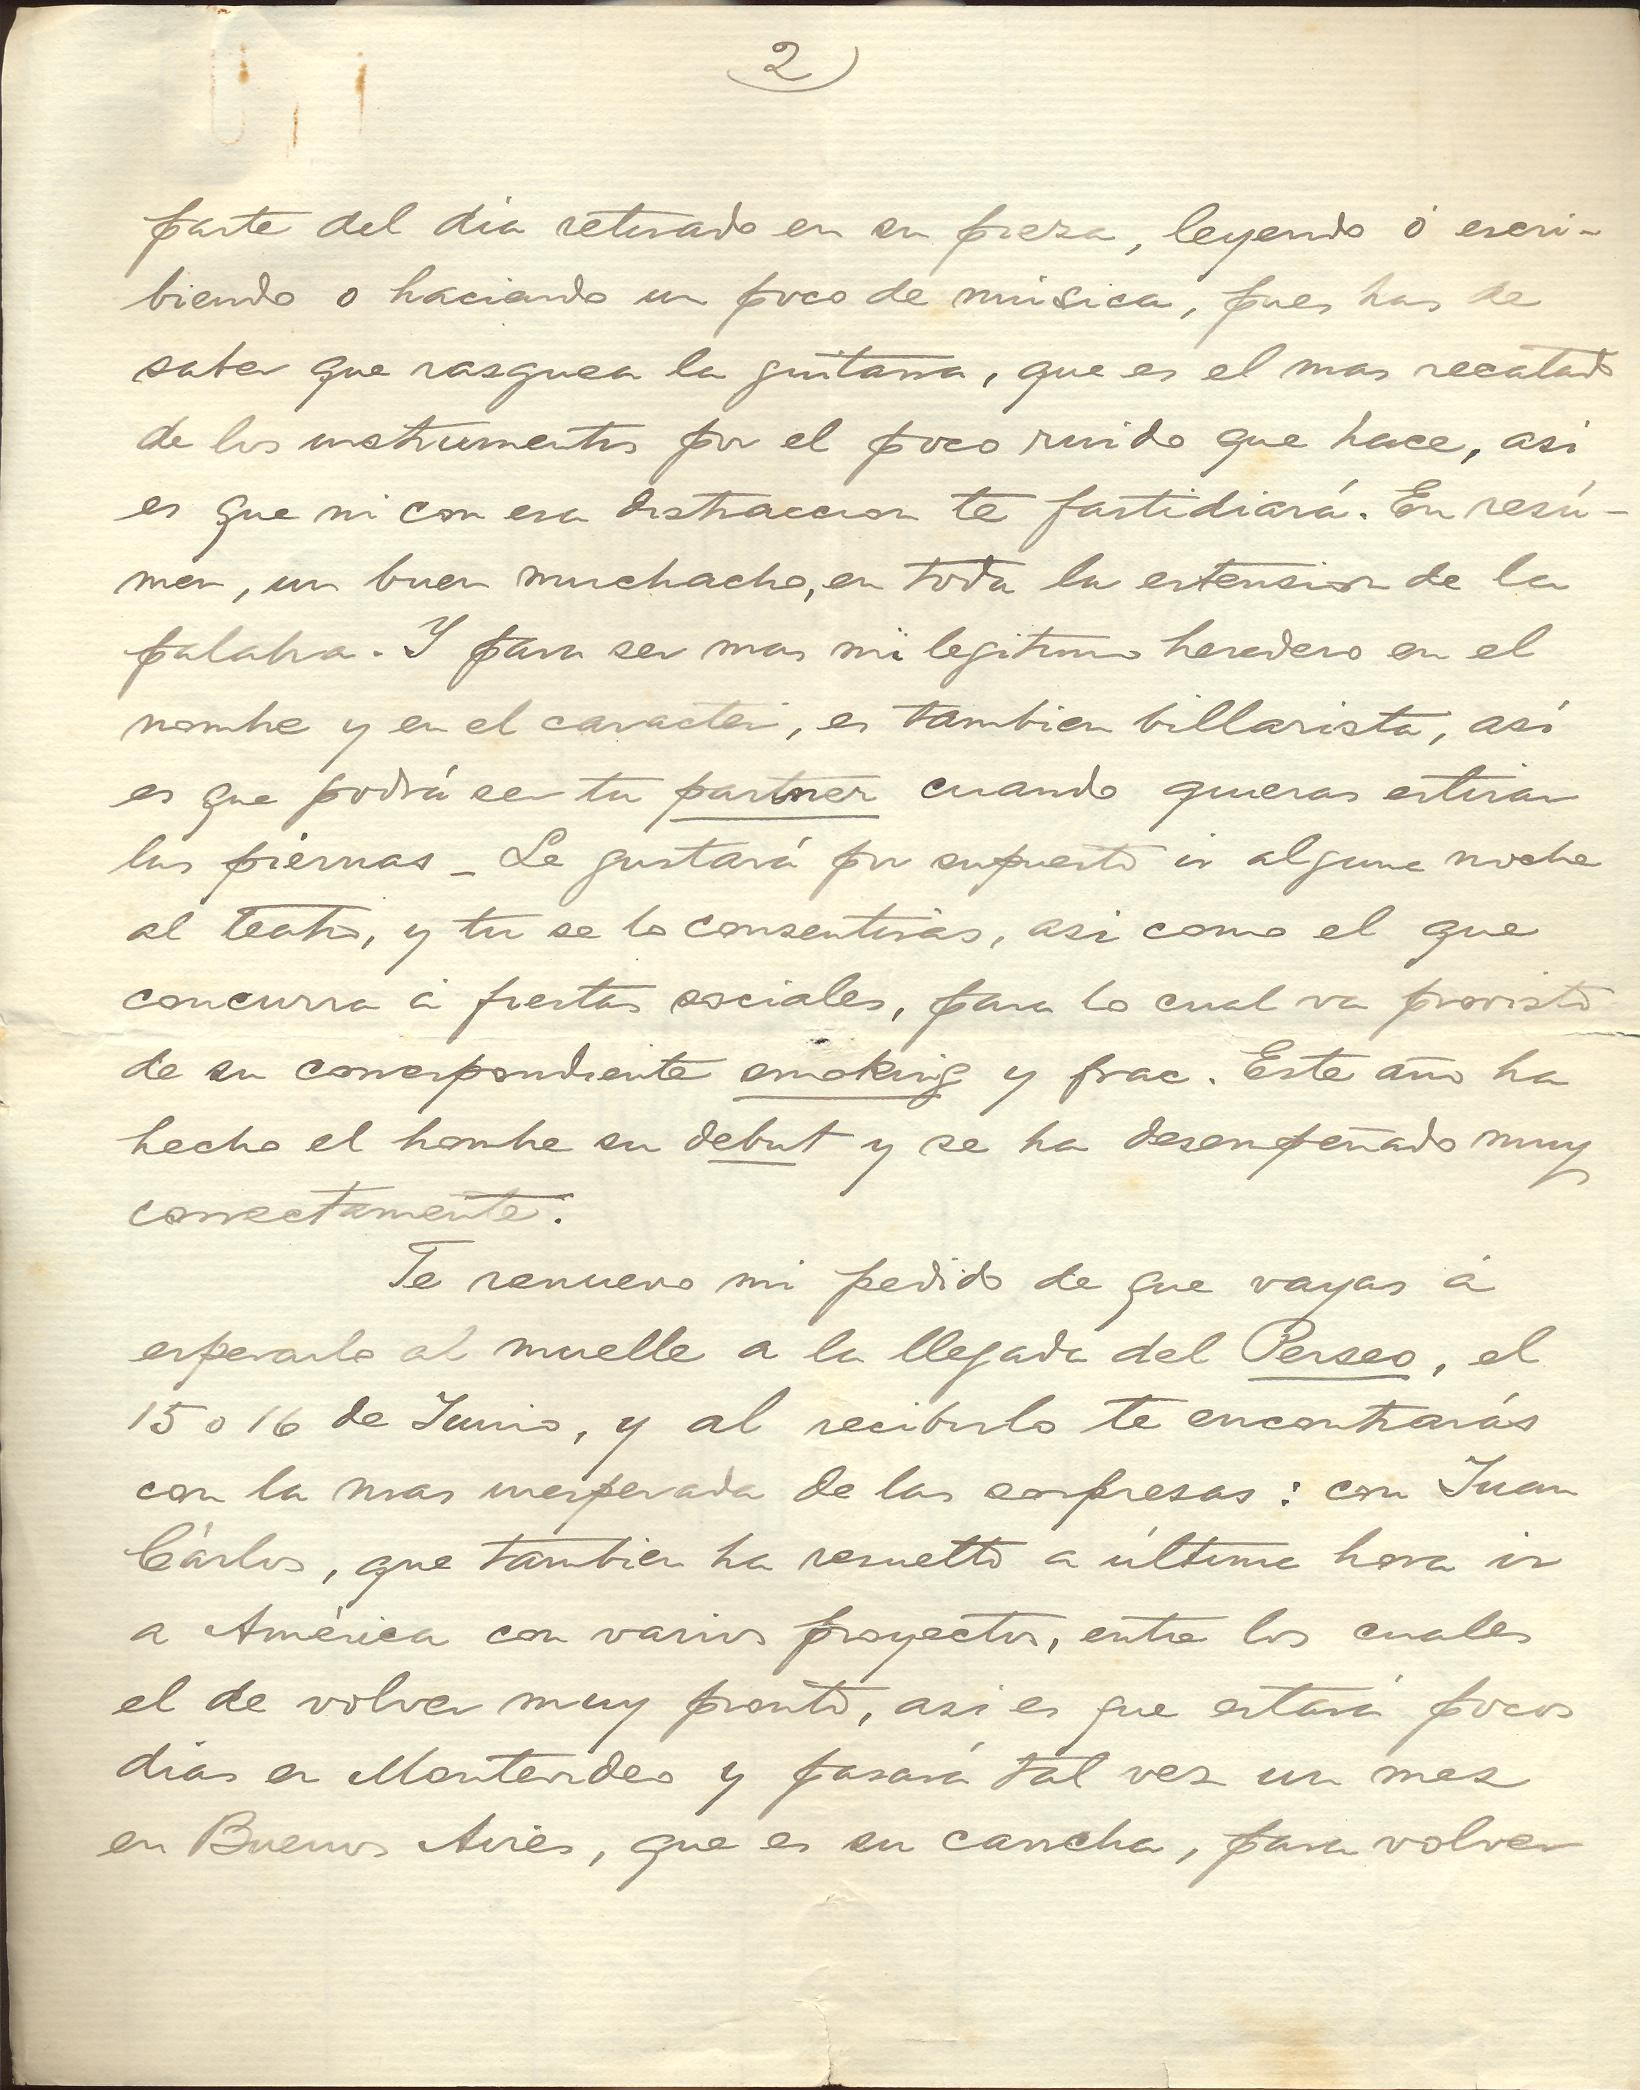 2
parte del dia retirado en su pieza, leyendo ó escri-
biendo o haciendo un poco de música, pues has de
saber que rasguea la guitarra, que es el mas recatado
de los instrumentos por el poco ruido que hace, asi
es que ni con esa distraccion te fastidiará. En resú-
men, un buen muchacho, en toda la estension de la
palabra. Y para ser mas mi legitimo heredero en el
nombre y en el caracter, es tambien billarista, así
es que podrá ser tu partner cuando quieras estirar
las piernas _ Le gustará por supuesto ir alguna noche
al teatro, y tu se lo consentirás, asi como el que
concurra á fiestas sociales, para lo cual va provisto
de su correspondiente smoking y frac. Este año ha
hecho el hombre su debut y se ha desempeñado muy
correctamente.
Te renuevo mi pedido de que vayas á
esperarlo al muelle a la llegada del Perseo, el
15 o 16 de Junio, y al recibirlo te encontrarás
con la mas inesperada de las sorpresas: con Juan
Cárlos, que tambien ha resuelto a última hora ir
a América con varios proyectos, entre los cuales
el de volver muy pronto, asi es que estará pocos
dias en Montevideo y pasará tal vez un mes
en Buenos Aires, que es su cancha, para volver